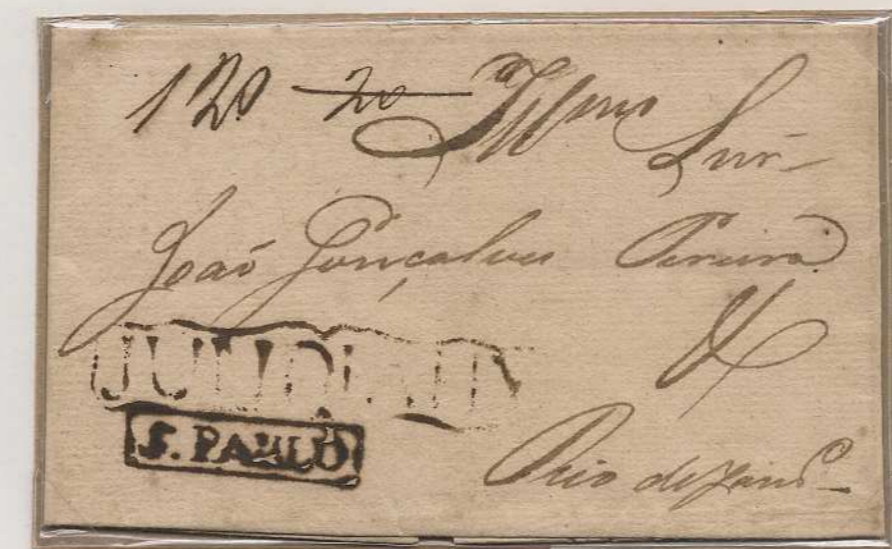 120 20 Illmo Snr
João Gonçalves Pereira
JUNDIAHI
S. PAULO
Rio de Janro